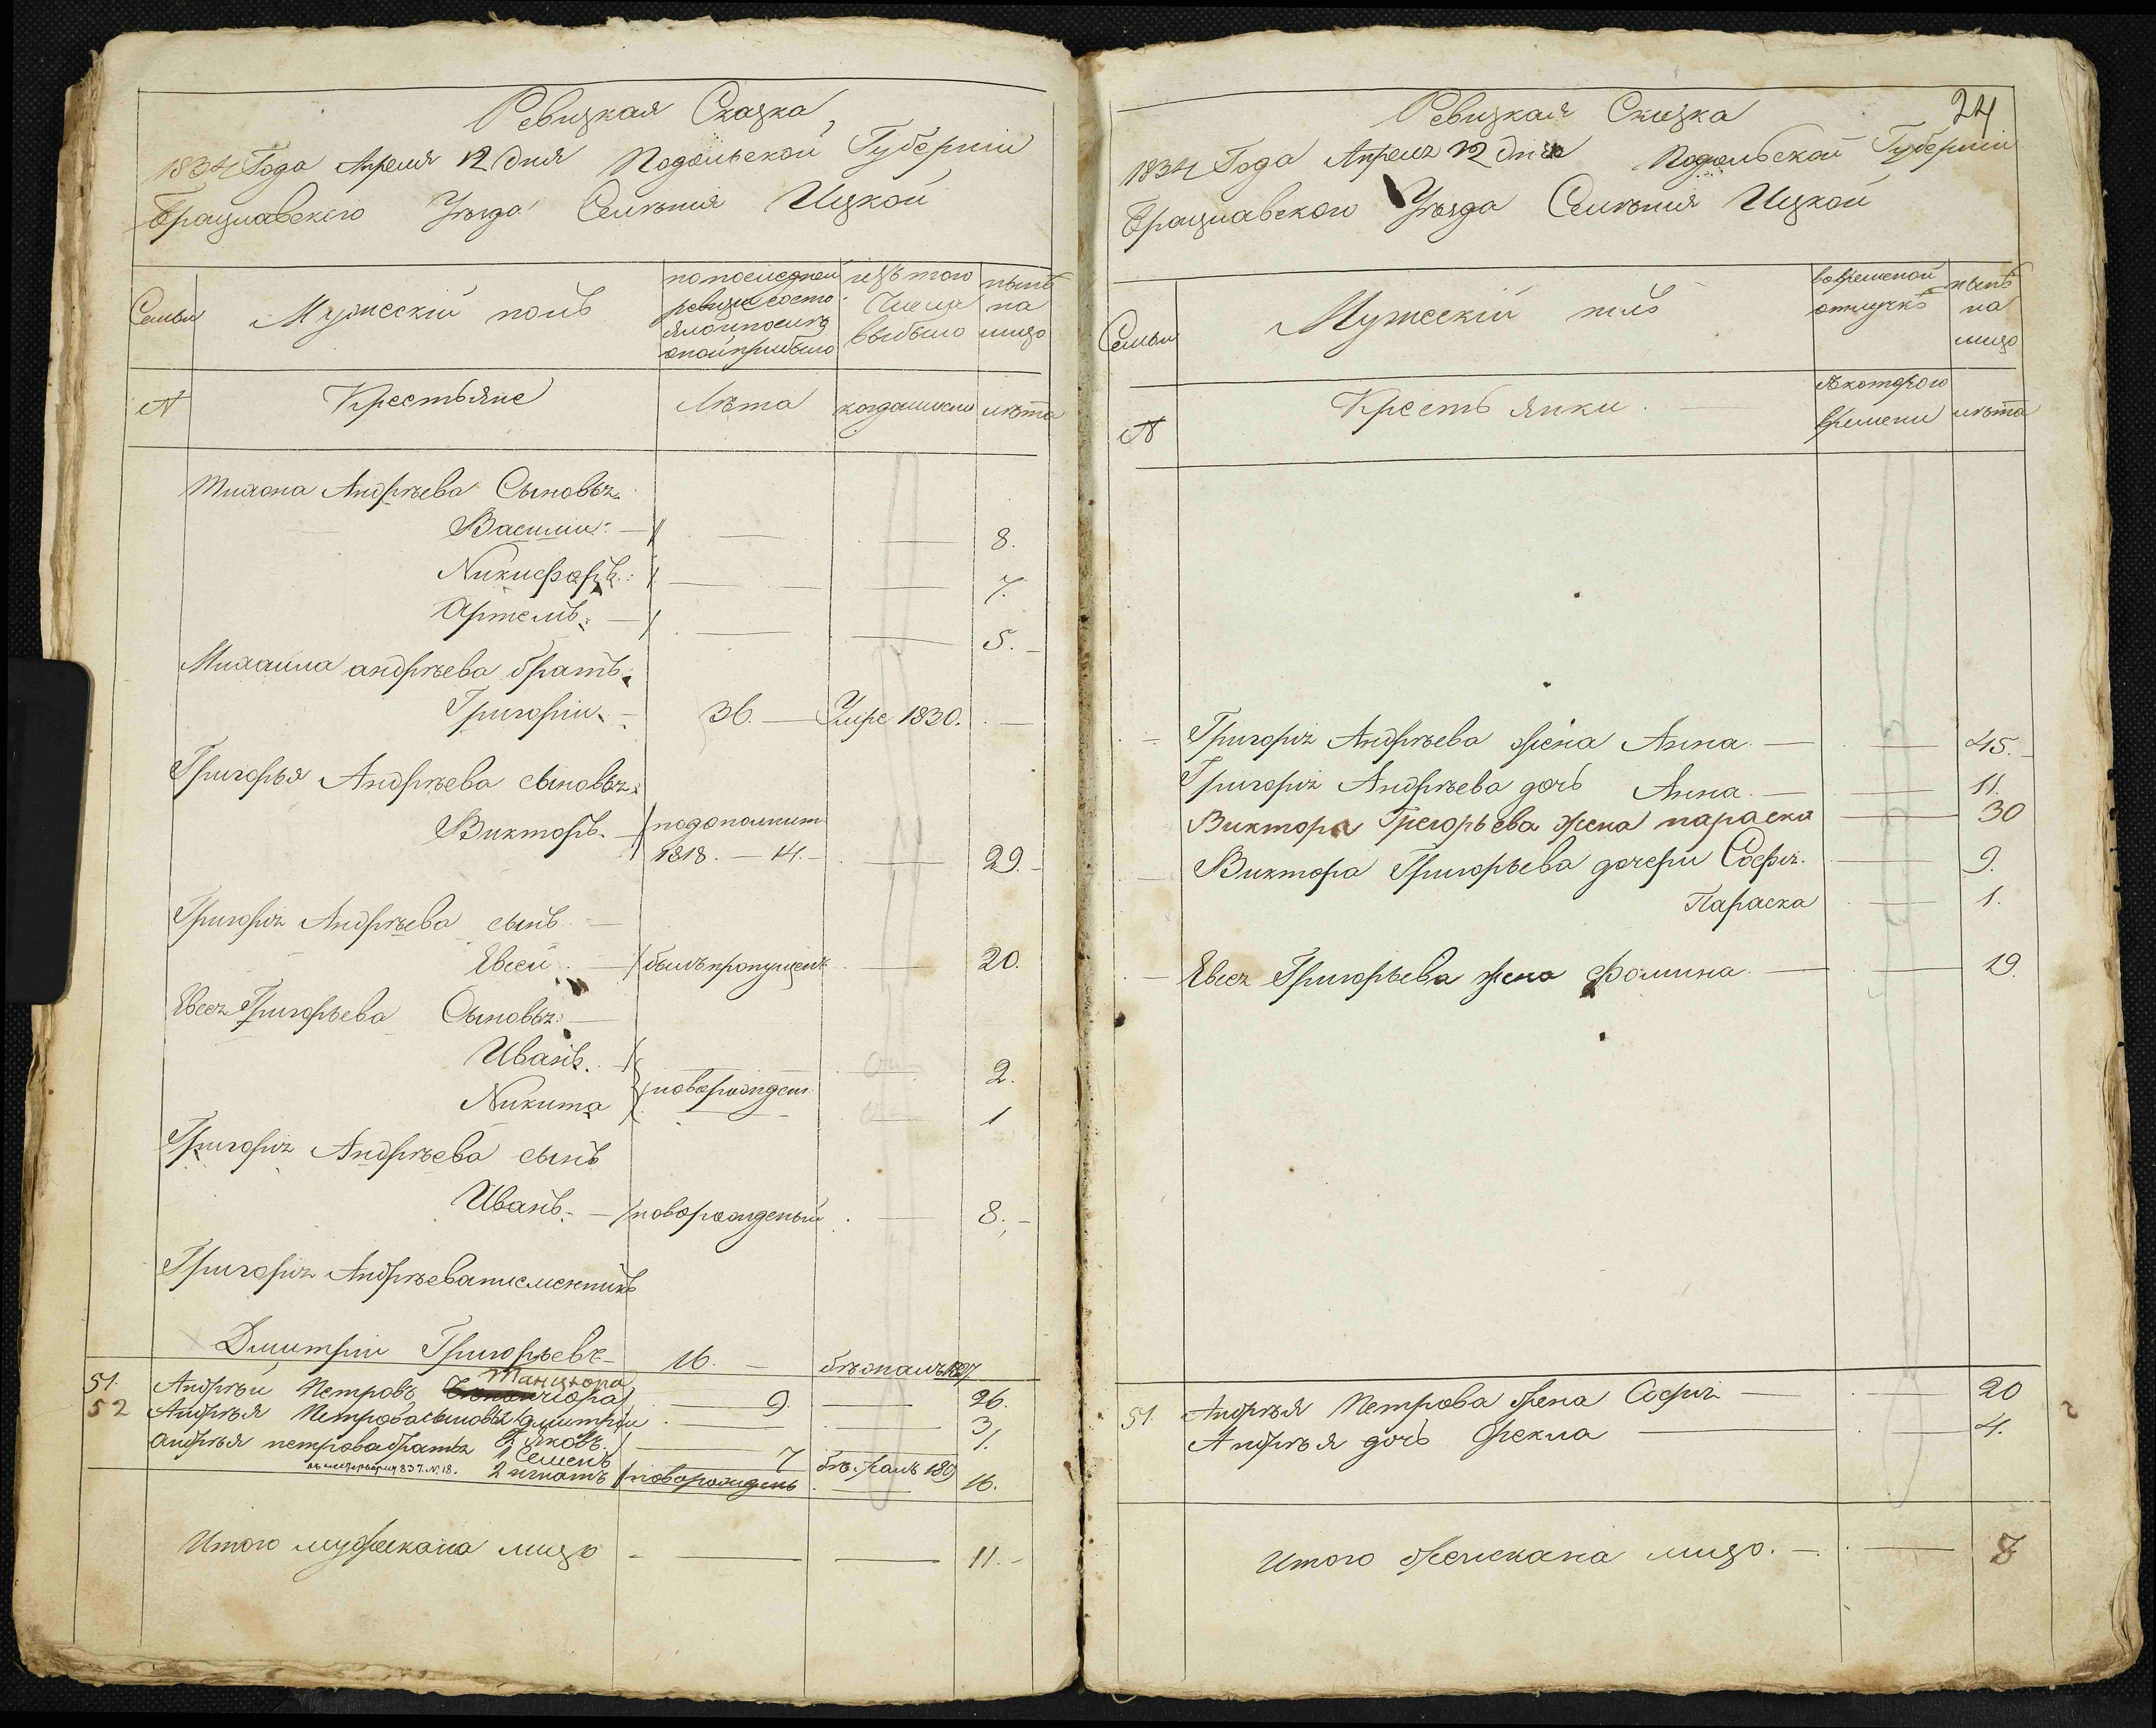 Ревизкая Сказка
1834 Года Апреля 12 дня Подольской Губерніи
Брацлавского Уѣзда Селѣния Ицкой
Семьи
Мужескій полъ
по последней
ревизіи состо
яло и послѣ
оной прибыло
изъ того
Числа
выбыло
нынѣ
на
лицо
N
Крестьяне
Лѣта
когда именно
лѣта
Михона Андрѣева Сыновья
Василій — — — 8.
Никифоръ — — 7.
Артемъ. — — — 5. —
Михаила андрѣева братъ.
Григорій. — 36. — Умре 1830. —
Григорья Андрѣева сыновья
Викторъ. — подополнит
1818. — 14. — — 29. —
Григорія Андрѣева сынъ —
Евсей. — былъ пропущенъ — 20.
Евсея Григорьева Сыновья: —
Иванъ. — — 2.
Никита новорожден. — 1
Григорія Андрѣева сынъ
Иванъ. — новорожденый — 8. —
Григорія Андрѣева племенникъ
Дмитрій Григорьевъ — 16. — бѣжалъ 1827
51. Андрѣй Петровъ Танцюра — 9. — 26.
52 Андрѣя Петрова сыновья Дмитрій — — 3
2 Яковъ. — 1.
Андрѣя петрова братья 1 Семенъ 7 бѣжалъ
837. N. 18. 2 игнатъ новорожденъ — 16.
Итого мужеска на лицо — — — 11. —
24
Ревизкая Сказка
1834 Года Апреля 12 дня Подольской Губерніи
Брацлавского Уѣзда Селѣния Ицкой
Семьи
Мужескій полъ
вовременой
отлучкѣ
нынѣ
на
лицо
N
Крестьянки. —
съ которого
времени
лѣта
Григорія Андрѣева жена Анна. — — 45. —
Григорія Андрѣева дочь Анна. — — 11.
Виктора Грегорьева жена параска — 30
Виктора Григорьева дочери Софія. — 9.
Параска — 1.
Евсея Григорьева жена Фомина — — 19.
51. Андрѣя Петрова жена Софія — — 20
Андрѣя дочь Фекла — — 4.
Итого женска на лицо. — — 8